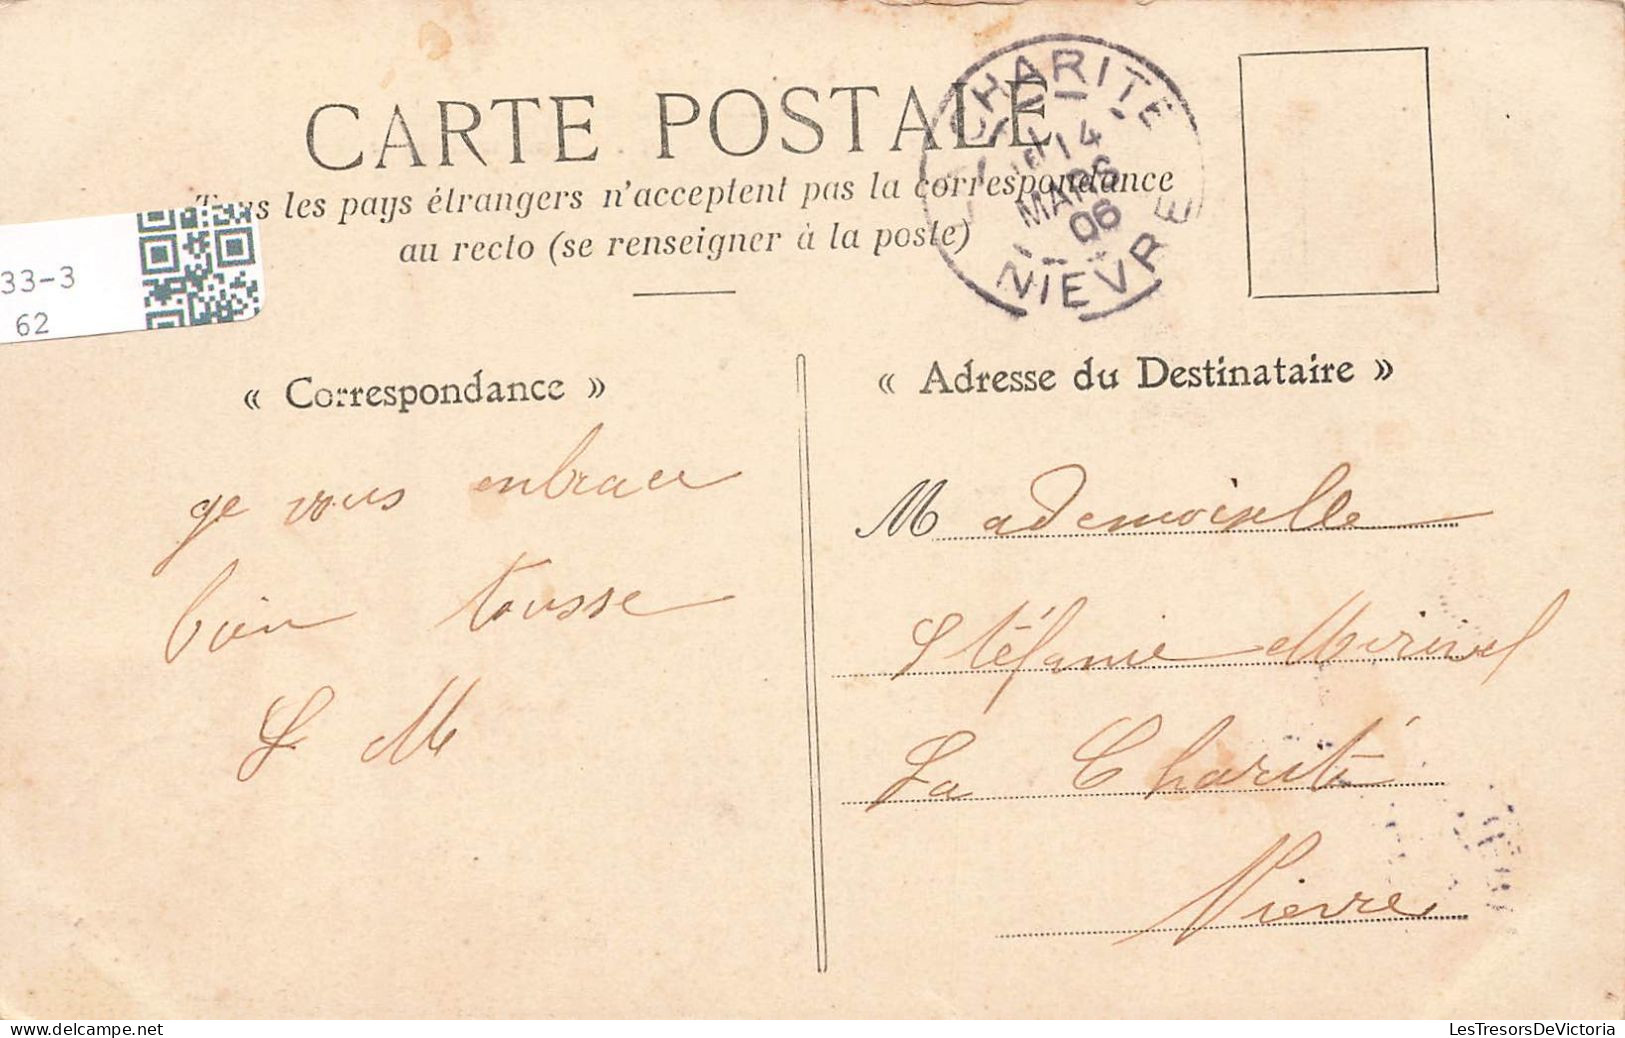 CARTE POSTALE
Tous les pays étrangers n'acceptent pas la correspondance
au recto (se renseigner à la poste)
CHARITE
14
MARS
06
NIEVRE
33-3
62
« Correspondance »
« Adresse du Destinataire »
ge vous enbrace
bien tousse
S M
Mademoiselle
Stéfanie
La Charité
Nievre
LesTresorsDeVictoria
www.delcampe.net